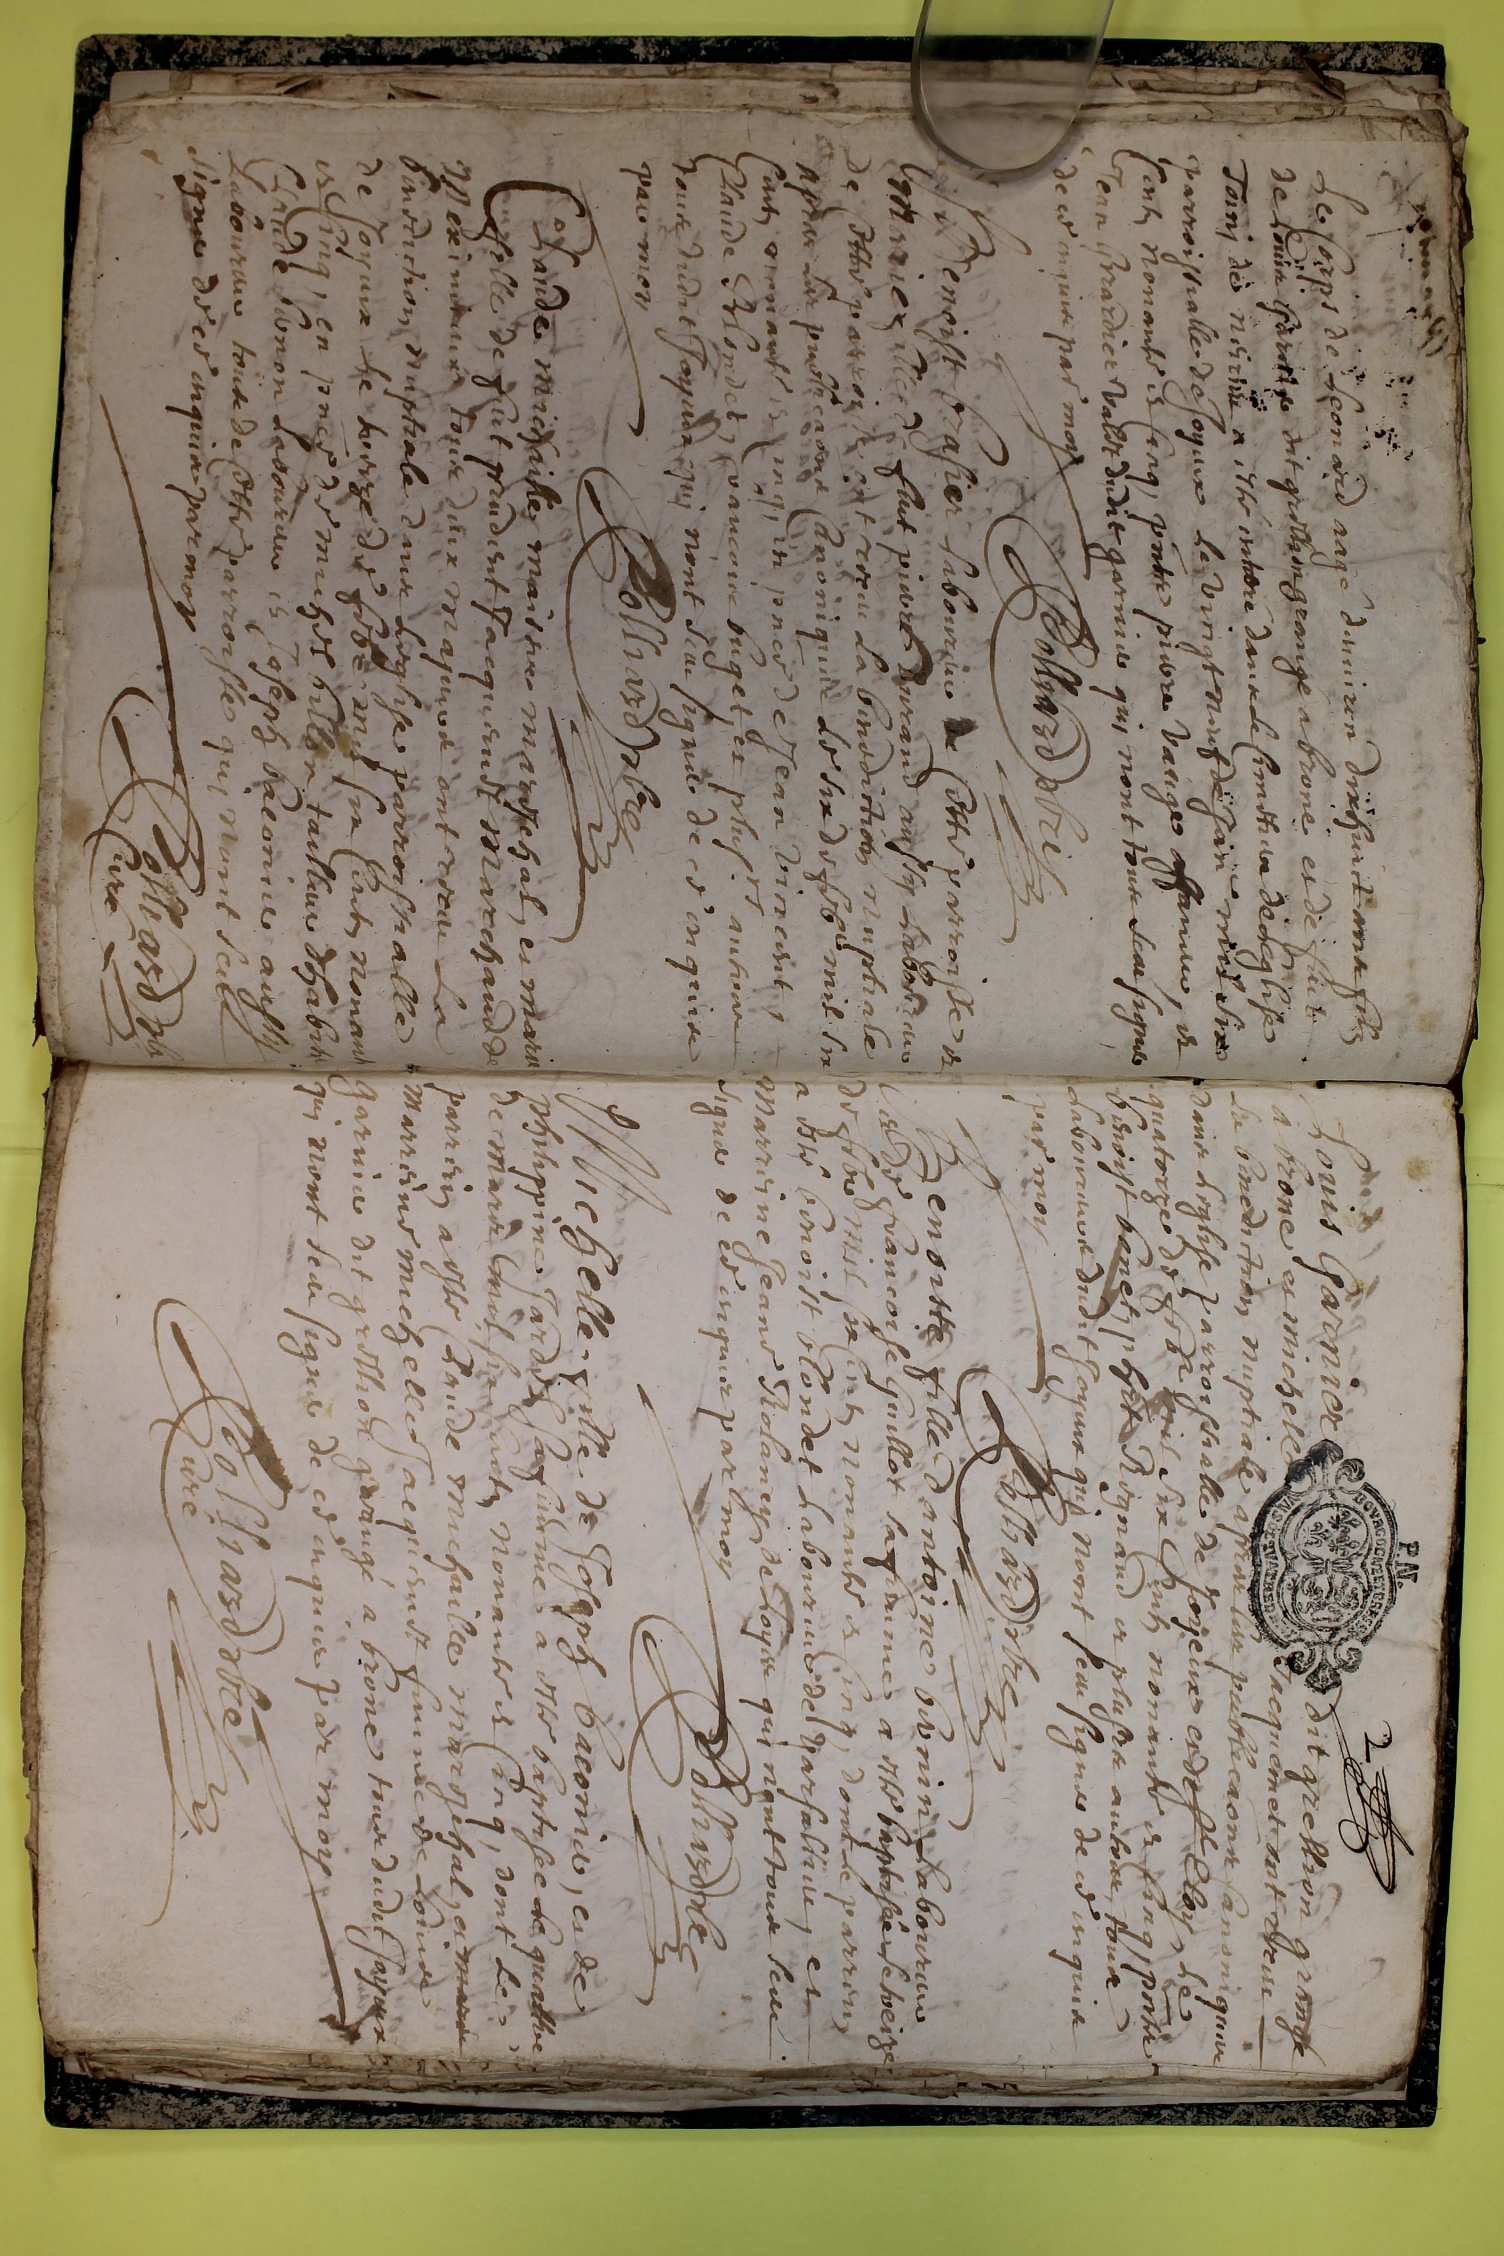 Le Corps de Leonard aage denviron dixhuict ans fils
de Louis Garnier dit grethon grange a brone et de fut
Tonij de a esté enterré dans le Cimetiere de leglise
parroissialle de Joyeux le vingt neuf de Janvier mil six
Cents nonante et Cinq, pnts pierre vauge et
Jean Grandier valet dudit garnier qui nont tous sceu signer
de ce enquis par moy
Colliard pbre
Benoist frasier Laboureur de cette parroisse et
Marie fille de feut pierre durand aussy Laboureur
de cette parroisse ont receu La benediction nuptiale
apres Les publicaons Canoniques Le six de feb. mil six
Cents nonante et cinq, en pnce de Jean vincent,
Claude Blondet, francois buget et plusrs autres
tous dudit Joyeux qui nont sceu signer de ce enquis
par moy
Colliard pbre
Claude michaille maistre mareschal, et marie
fille de feut prudent Jacquemet marchand de
meximieux tous deux majeurs ont receu La
benediction nuptiale dans Leglise parroissialle
de Joyeux le treize de feb. mil six Cents nonante
et Cinq, en pnce de michel billon tailleur dhabits
Claude bernon Laboureur et Joseph baconier aussy
Laboureur tous de cette parroisse qui n'ont sceu
signer de ce enquis par moy
Colliard pbr
Curé
2
P. N.
Louis Garnier dit grethon grange
a brone et michelle Jacquemet ont receu
La benediction nuptiale apres Les publicaons Canoniques
dans Leglise parroissialle de Joyeux et de St Eloy, Le
quatorze de feb. mil six Cents nonante et Cinq, pnts
benoist banet, phpt Rignand et plusrs autres tous
Laboureurs dudit Joyeux qui n'ont sceu signer de ce enquis
par moy
Colliard pbre
Benoiste fille d'antoine bernin Laboureur
et de francoise Guillot sa femme a esté baptisée le seize
de feb. mil six Cents nonante et Cinq, dont le parrin
a esté benoist blondet Laboureur de versailleux, et
marrine Jeanne Rolaney de Joyeux qui n'ont tous sceu
signer de ce enquis par moy
Colliard pbre
Michelle fille de Joseph baconier, et de
philippine Jardy sa femme a esté baptisée le quattre
de mars mil six Cents nonante et Cinq, dont Le
parrin a esté Claude michaille mareschal, et
marrine michelle Jacquemet femme de Louis
garnier dit grethon grange a brone tous dudit Joyeux
qui n'ont sceu signer de ce enquis par moy
Colliard pbre
Curé